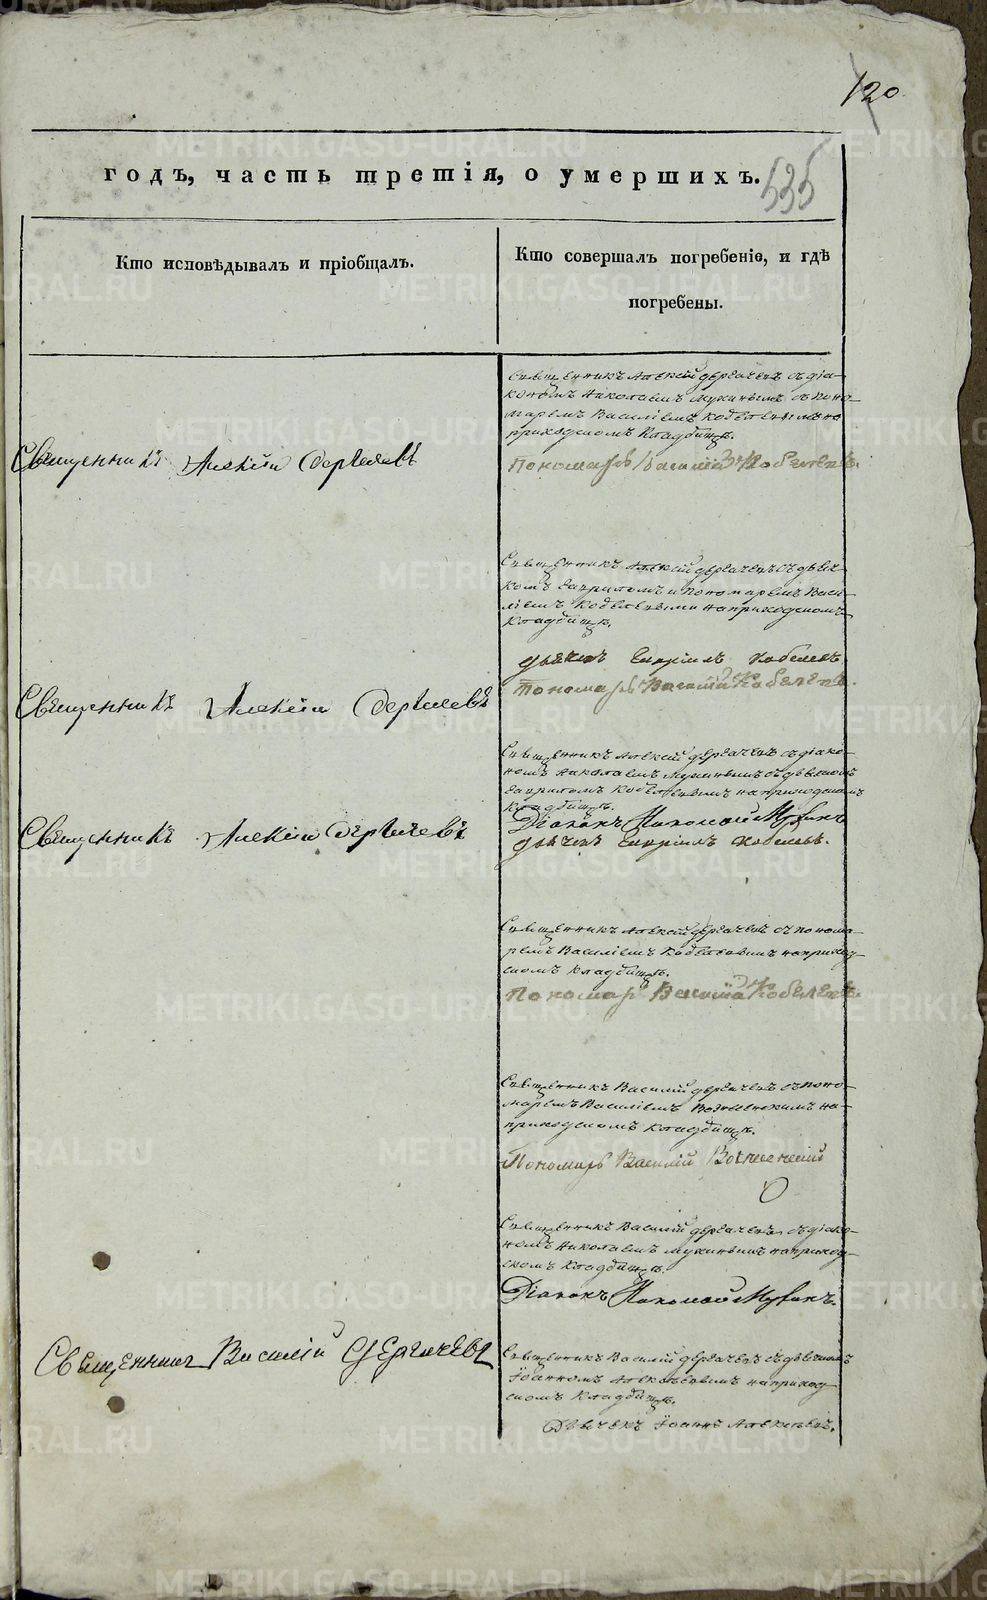 120
годъ, часть третія, о умершихъ.
535
Кто исповѣдывалъ и пріобщалъ.
Кто совершалъ погребеніе, и гдѣ
погребены.
Священникъ Алексій Дергачевъ съ діа-
кономъ Николаемъ Мухинымъ съ поно-
маремъ Василіемъ Кобелевымъ на
приходскомъ кладбищѣ.
Священникъ Алексій Дергачевъ
Пономарь Василій Кобелевъ.
Священникъ Алексій Дергачевъ съ дьяч-
комъ Гавриломъ и пономаремъ Васи-
ліемъ Кобелевыми на приходскомъ
кладбищѣ.
дьячекъ Гавріилъ Кобелевъ
Пономарь Василій Кобелевъ.
Священникъ Алексій Дергачевъ
Священникъ Алексій Дергачевъ съ діако-
номъ Николаемъ Мухинымъ съ дьячкомъ
Гавриломъ Кобелевымъ на приходскомъ
кладбищѣ.
Діаконъ Николай Мухинъ
Священникъ Алексій Дергачевъ
дьячекъ Гавріилъ Кобелевъ.
Священникъ Алексій Дергачевъ съ понома-
ремъ Василіемъ Кобелевымъ на приход-
скомъ кладбищѣ.
Пономарь Василій Кобелевъ.
Священникъ Василій Дергачевъ съ поно-
маремъ Василіемъ Вознесенскимъ на
приходскомъ кладбищѣ.
Пономарь Василій Вознесенскій
Священникъ Василій Дергачевъ съ діако-
номъ Николаемъ Мухинымъ на приход-
скомъ кладбищѣ.
Діаконъ Николай Мухинъ.
Священникъ Василій Дергачевъ
Священникъ Василій Дергачевъ съ дьячкомъ
Іоанномъ Алексѣевымъ на приход-
скомъ кладбищѣ.
Дьячекъ Іоаннъ Алексѣевъ.
METRIKI.GASO-URAL.RU